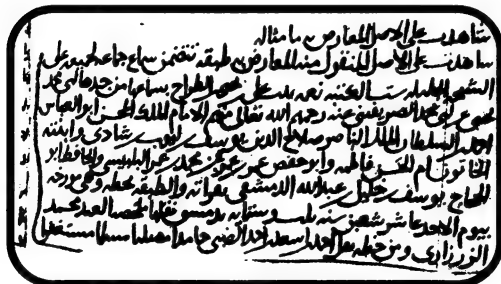 شاهدت على الاصل المعارض به ما مثاله
شاهدت على الاصل المنقول منه المعارض به طبقة تتضمن سماع جماعة لجميعه على
الشيخة الجليلة ست الكتبة نعمة بنت على بن يحيى الطراح بسماعها من جدها ابى محمد
يحيى بن على عن الصريفيني عنه رحمه الله تعالى منهم الامام الملك المحسن ابو العباس
احمد بن السلطان الملك الناصر صلاح الدين يوسف بن ايوب بن شادى وابنته
الخاتون ام الحسن فاطمة وابو حفص عمر بن محمد بن عمر البلبيسى والحافظ ابو
الحجاج يوسف بن خليل بن عبدالله الدمشقى بقراته والطبقة بخطه وهى مورخه
بيوم الاحد عاشر شعبان سنة بدمشق نقلها مختصرا العبد محمد
الزرزارى ومن خطه نقل احمد بن حامدا مصليا مسلما مستغفرا